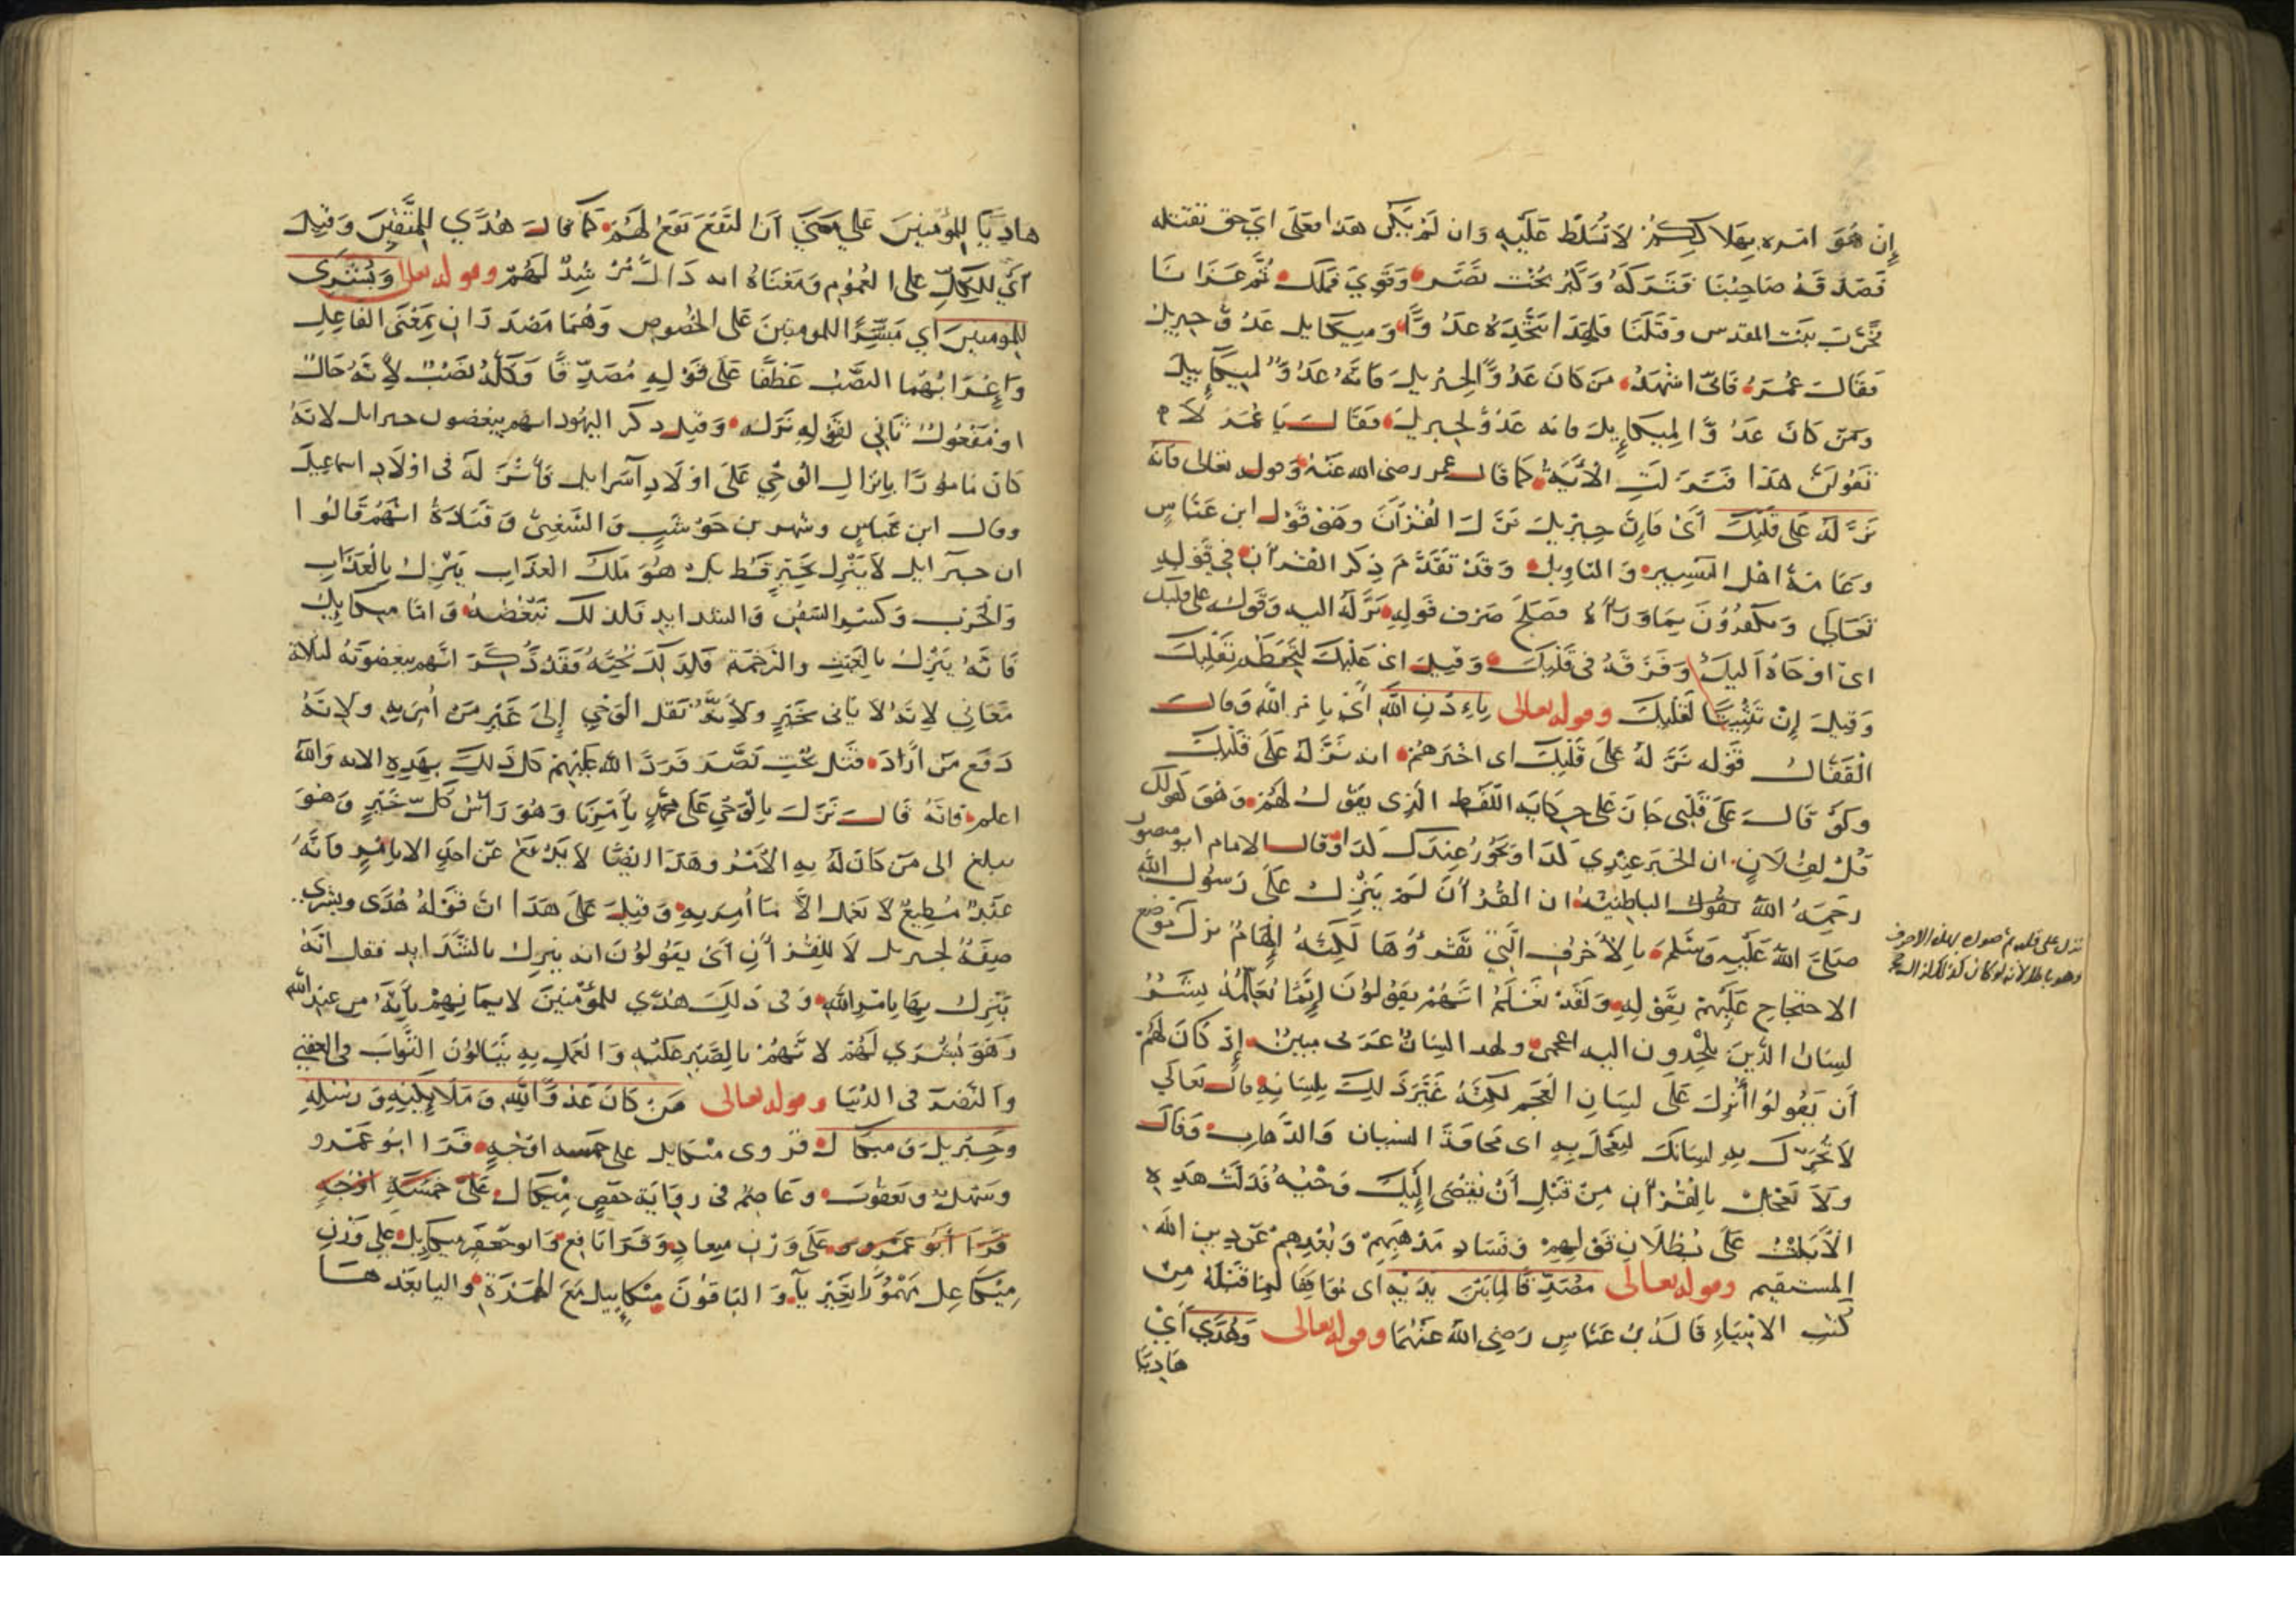 إِنْ هُوَ امره بهلاككم لا تسلط عليه وان لم يكن هذا فعلى اي حق تقتله
فصدقه صاحبنا فتركه وكبر بخت نصر وقوي فملك ثم غزانا
فخرب بيت المقدس وقتلنا فلهذا نتخذه عدوًّا وميكايل عدو جبريل
فقال عمر فانى اشهد من كان عدوًّا لجبريل فانه عدوٌّ لميكاييل
ومن كان عدوًّا لميكاييل فانه عدو لجبريل فقالت يا عمر لا
تقولن هذا فنزلت الآية كما قال عمر رضى الله عنه وقوله تعالى فانه
نزّله على قلبك أى فإن جبريل نزّل القرآن وهو قول ابن عباس
وعامة اهل التفسير والتاويل وقد تقدّم ذكر القرآن في قوله
تعالى ويكفرون بما وراءه فصلح صرف قوله نزّله اليه وقوله على قلبك
اى اوحاه اليك وفرقه فى قلبك وقيل اى عليك لتحفظه بقلبك
وقيل إن تثبيتا لقلبك وقوله تعالى بإذن الله أى بامر الله وقال
القفال قوله نزّله على قلبك اى اخبرهم انه نزّله على قلبك
ولو قال على قلبى جاز على حكاية اللفظ الذى يقول لهم وهو كقولك
قل لفلان ان الخبر عندي كذا ويجوز عندك كذا وقال الامام ابو منصور
رحمه الله تقول الباطنية ان القرآن لم ينزل على رسول الله
صلى الله عليه وسلم بالأحرف التي نقرؤها لكنه إلهام نزل موضع
الاحتجاج عليهم بقوله ولقد نعلم انهم يقولون إنما يعلمه بشر
لسان الذين يلحدون اليه اعجمى وهذا لسان عربى مبين إذ كان لهم
أن يقولوا أنزل على لسان العجم لكنه غيّر ذلك بلسانه قال تعالى
لا تحرّك به لسانك لتعجل به اى مخافة النسيان والذهاب وقال
ولا تعجل بالقرآن من قبل أن يقضى إليك وحيه فدلّت هذه
الآيات على بطلان قولهم وفساد مذهبهم وبعدهم عن دين الله
المستقيم وقوله تعالى مصدّقا لما بين يديه اى موافقا لما قبله من
كتب الانبياء قاله ابن عباس رضى الله عنهما وقوله تعالى وهدى أي
هاديًا
نزل على قلبه ثم صوره بهذه الاحرف
وهو باطل لانه لو كان كذلك
هاديا للمؤمنين على معنى أن النفع يقع لهم كما قال هدى للمتقين وقيل
أي للكل على العموم ومعناه انه دالّ مرشد لهم وقوله تعالى وبشرى
للمومنين أي مبشّرا للمومنين على الخصوص وهما مصدران بمعنى الفاعل
وإعرابهما النصب عطفا على قوله مصدّقا وكله نصب لأنه حال
او مفعول ثاني لقوله نزله وقيل ذكر اليهود انهم يبغضون جبرايل لانه
كان مامورا بانزال الوحي على اولاد اسرايل فأنزله فى اولاد اسماعيل
وقال ابن عباس وشهر بن حوشب والشعبى وقتادة انهم قالوا
ان جبرايل لا ينزل بخير قط بل هو ملك العذاب ينزل بالعذاب
والحرب وكسر السفن والشدايد فلذلك نبغضه واما ميكاييل
فانه ينزل بالغيث والرحمة فلذلك نحبه فقد ذكر انهم يبغضونه لثلاثة
معاني لانه لا ياتى بخير ولأنه نقل الوحي إلى غير من أمر به ولانه
دفع من أراد قتل بخت نصر فردّ الله عليهم كل ذلك بهذه الاية والله
اعلم فانه قال نزل بالوحي على محمد بأمرنا وهو رأس كل خير وهو
مبلغ الى من كان له به الأمر وهذا ايضا لا يدفع عن احد الا بامر فانه
عبد مطيع لا يعمل الا ما أمر به وقيل على هذا ان قوله هدى وبشرى
صفة لجبريل لا للقرآن أى يقولون انه ينزل بالشدايد فقل انه
ينزل بها بامر الله وفى ذلك هدى للمؤمنين لايمانهم بأنه من عند الله
وهو بشرى لهم لانهم بالصبر عليه والعمل به ينالون الثواب فى العقبى
والنصرة فى الدنيا وقوله تعالى من كان عدوّا لله وملائكته ورسله
وجبريل وميكال فروى ميكايل على خمسة اوجه قرا ابو عمرو
وسهل ويعقوب وعاصم فى رواية حفص ميكال على خمسة اوجه
قرا أبو عمرو على وزن ميعاد وقرا نافع وابو جعفر ميكايل على وزن
ميكاعل مهموزا بغير ياء والباقون ميكاييل مع الهمزة واليا بعدها